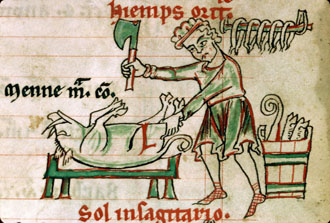 hiemps orit.
menne m̄. eō.
Sol in sagittario.